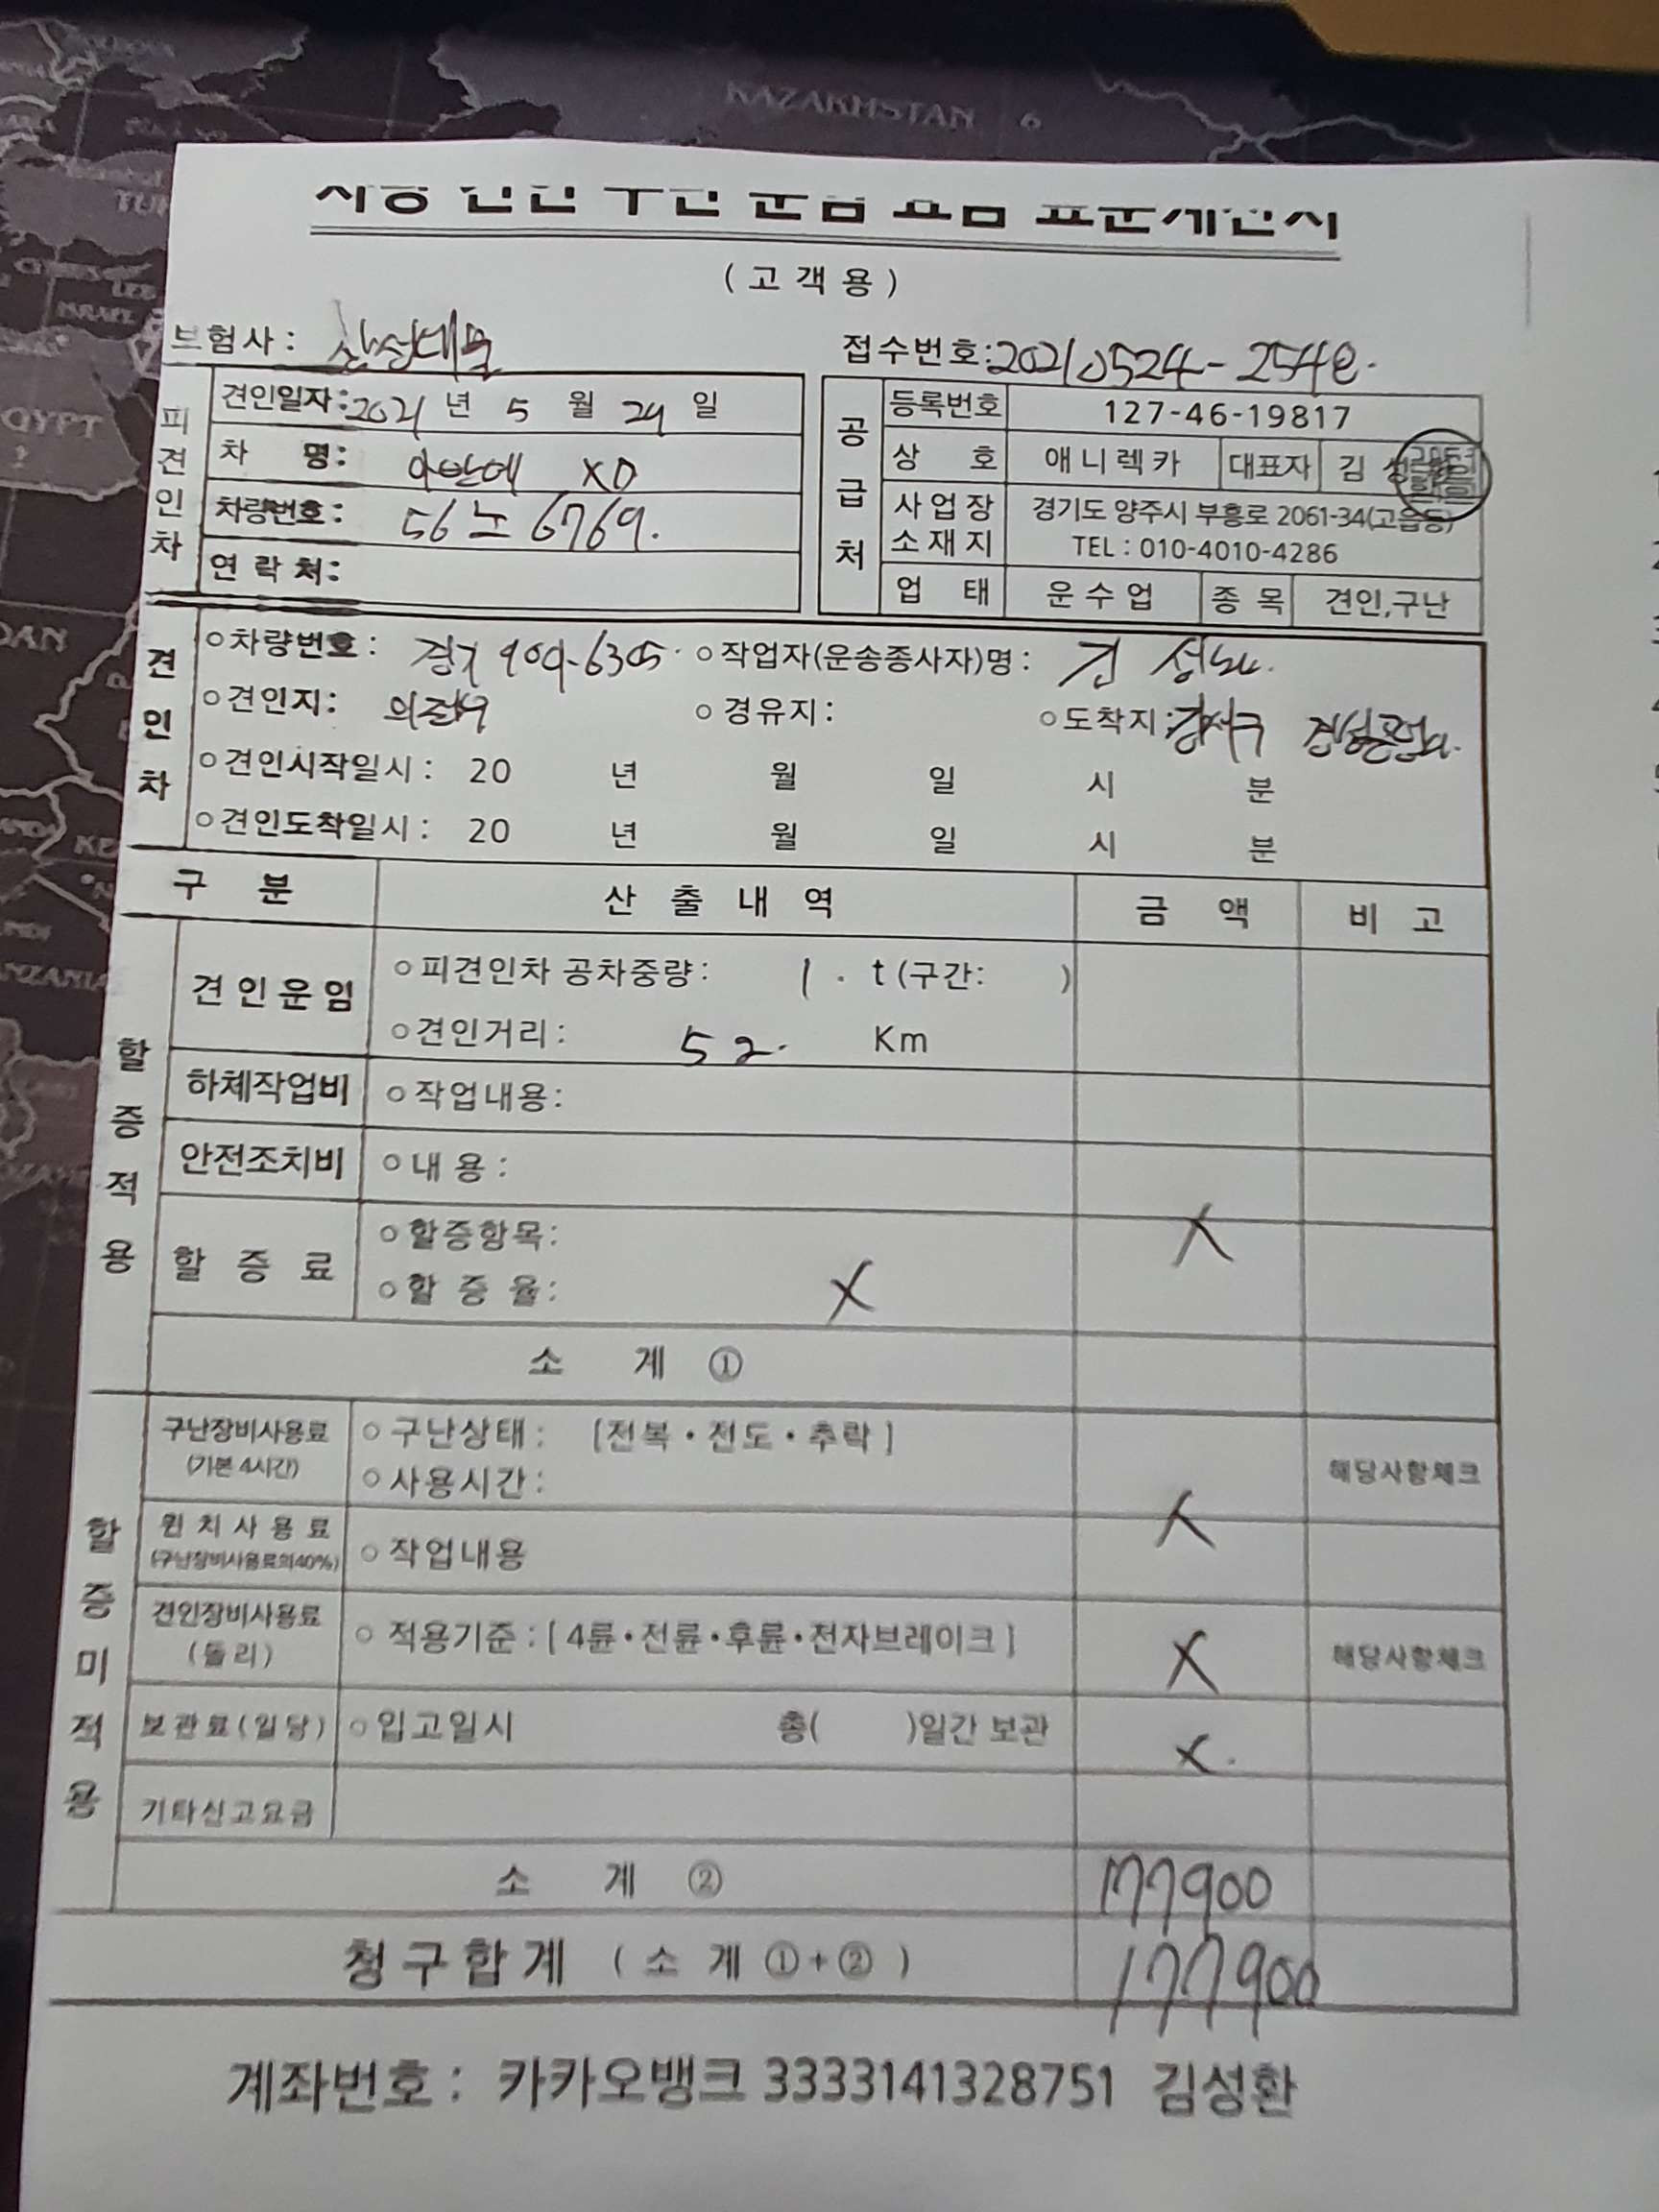 KAZAKHSTAN 6
(고객용)
브험사:
접수번호:20210524-2548.
피견인차
견인일자:2021 년 5 월 24 일
차 명: 아반떼 XD
차량번호: 56노 6769.
연락처:
공급처
등록번호 127-46-19817
상 호 애니렉카 대표자 김 성
사업장 소재지 경기도 양주시 부흥로 2061-34(고읍동)
TEL : 010-4010-4286
업 태 운수업 종목 견인,구난
견인차
○차량번호: 경기 90아-6305 ○작업자(운송종사자)명: 김 성환
○견인지: 의정부 ○경유지: ○도착지:강서구
○견인시작일시: 20 년 월 일 시 분
○견인도착일시: 20 년 월 일 시 분
구 분 산 출 내 역 금 액 비 고
할증적용
견인운임 ○피견인차 공차중량: 1. t (구간: )
○견인거리: 52. Km
하체작업비 ○작업내용:
안전조치비 ○내용:
할증료 ○할증항목: X
○할증율: X
소 계 ①
할증미적용
구난장비사용료 (기본 4시간) ○구난상태: [전복·전도·추락] 해당사항체크
○사용시간: X
윈치사용료 (구난장비사용료의40%) ○작업내용
견인장비사용료 (돌리) ○적용기준: [4륜·전륜·후륜·전자브레이크] X 해당사항체크
보관료(일당) ○입고일시 총( )일간 보관 X.
기타신고요금
소 계 ② 177900
청구합계 (소 계 ①+②) 177900
계좌번호: 카카오뱅크 3333141328751 김성환